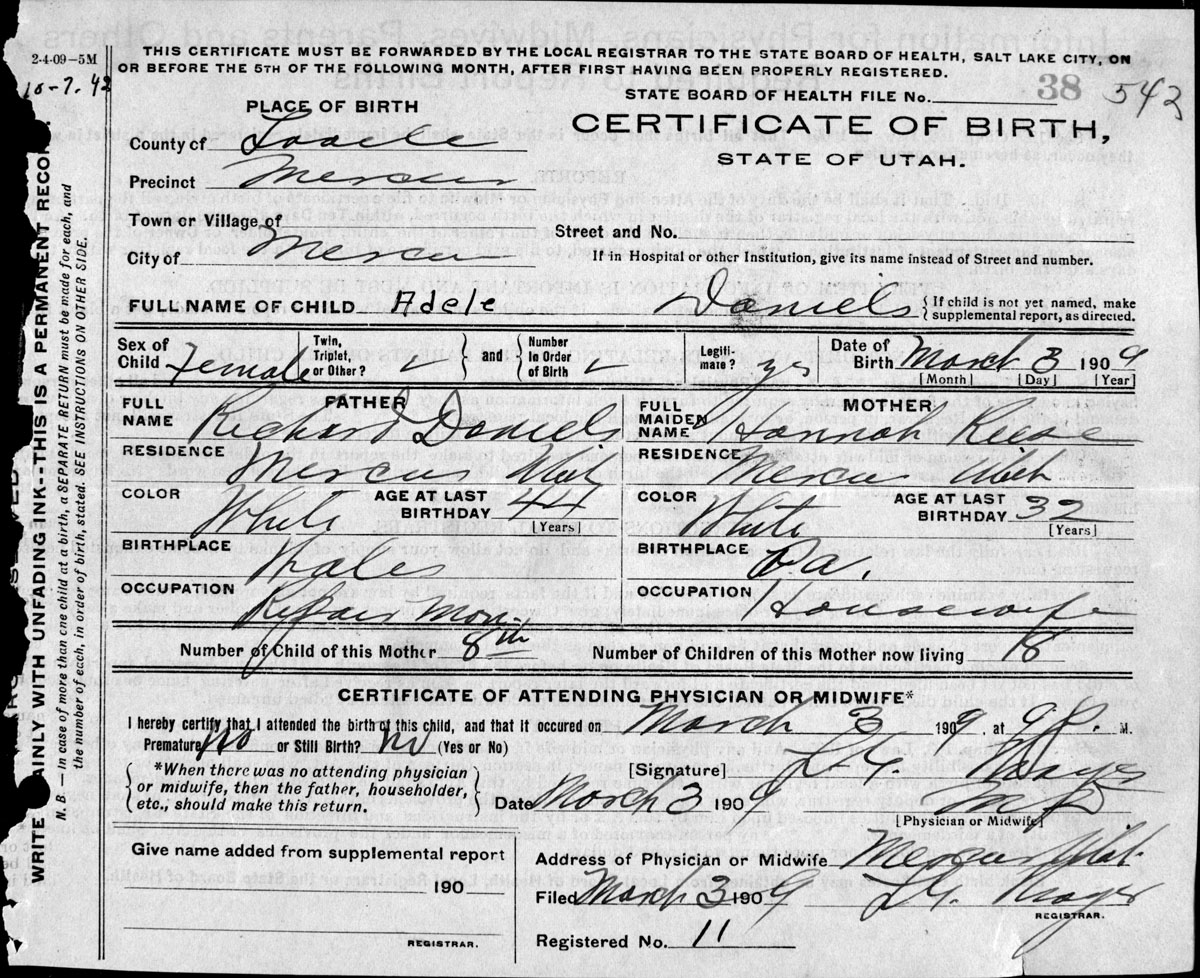 2-4-09-5M
THIS CERTIFICATE MUST BE FORWARDED BY THE LOCAL REGISTRAR TO THE STATE BOARD OF HEALTH, SALT LAKE CITY, ON
OR BEFORE THE 5TH OF THE FOLLOWING MONTH, AFTER FIRST HAVING BEEN PROPERLY REGISTERED.
10-7.42
STATE BOARD OF HEALTH FILE No. 38 542
PLACE OF BIRTH
CERTIFICATE OF BIRTH,
STATE OF UTAH.
County of Tooele
Precinct Mercur
Town or Village of
Street and No.
City of Mercur
If in Hospital or other Institution, give its name instead of Street and number.
FULL NAME OF CHILD Adele Daniels {If child is not yet named, make
supplemental report, as directed.
Sex of Child Female
Twin, Triplet, or Other?
and
Number in Order of Birth
Legitimate? yes
Date of Birth March 3 1909
[Month] [Day] [Year]
FATHER
FULL NAME Richard Daniels
RESIDENCE Mercur
COLOR White AGE AT LAST BIRTHDAY 44
[Years]
BIRTHPLACE Wales
OCCUPATION Repair Man.
MOTHER
FULL MAIDEN NAME Hannah Reese
RESIDENCE Mercur Utah
COLOR White AGE AT LAST BIRTHDAY 32
[Years]
BIRTHPLACE Pa.
OCCUPATION Housewife
Number of Child of this Mother 8th Number of Children of this Mother now living 8
CERTIFICATE OF ATTENDING PHYSICIAN OR MIDWIFE*
I hereby certify that I attended the birth of this child, and that it occured on March 3 1909, at 9 P. M.
Premature? No or Still Birth? No (Yes or No)
*When there was no attending physician
or midwife, then the father, householder,
etc., should make this return.
[Signature]
Date March 3 1909 M.D.
[Physician or Midwife]
Give name added from supplemental report
190
REGISTRAR.
Address of Physician or Midwife Mercur Utah.
Filed March 3 1909
REGISTRAR.
Registered No. 11
WRITE PLAINLY WITH UNFADING INK--THIS IS A PERMANENT RECORD.
N. B.—In case of more than one child at a birth, a SEPARATE RETURN must be made for each, and
the number of each, in order of birth, stated. SEE INSTRUCTIONS ON OTHER SIDE.